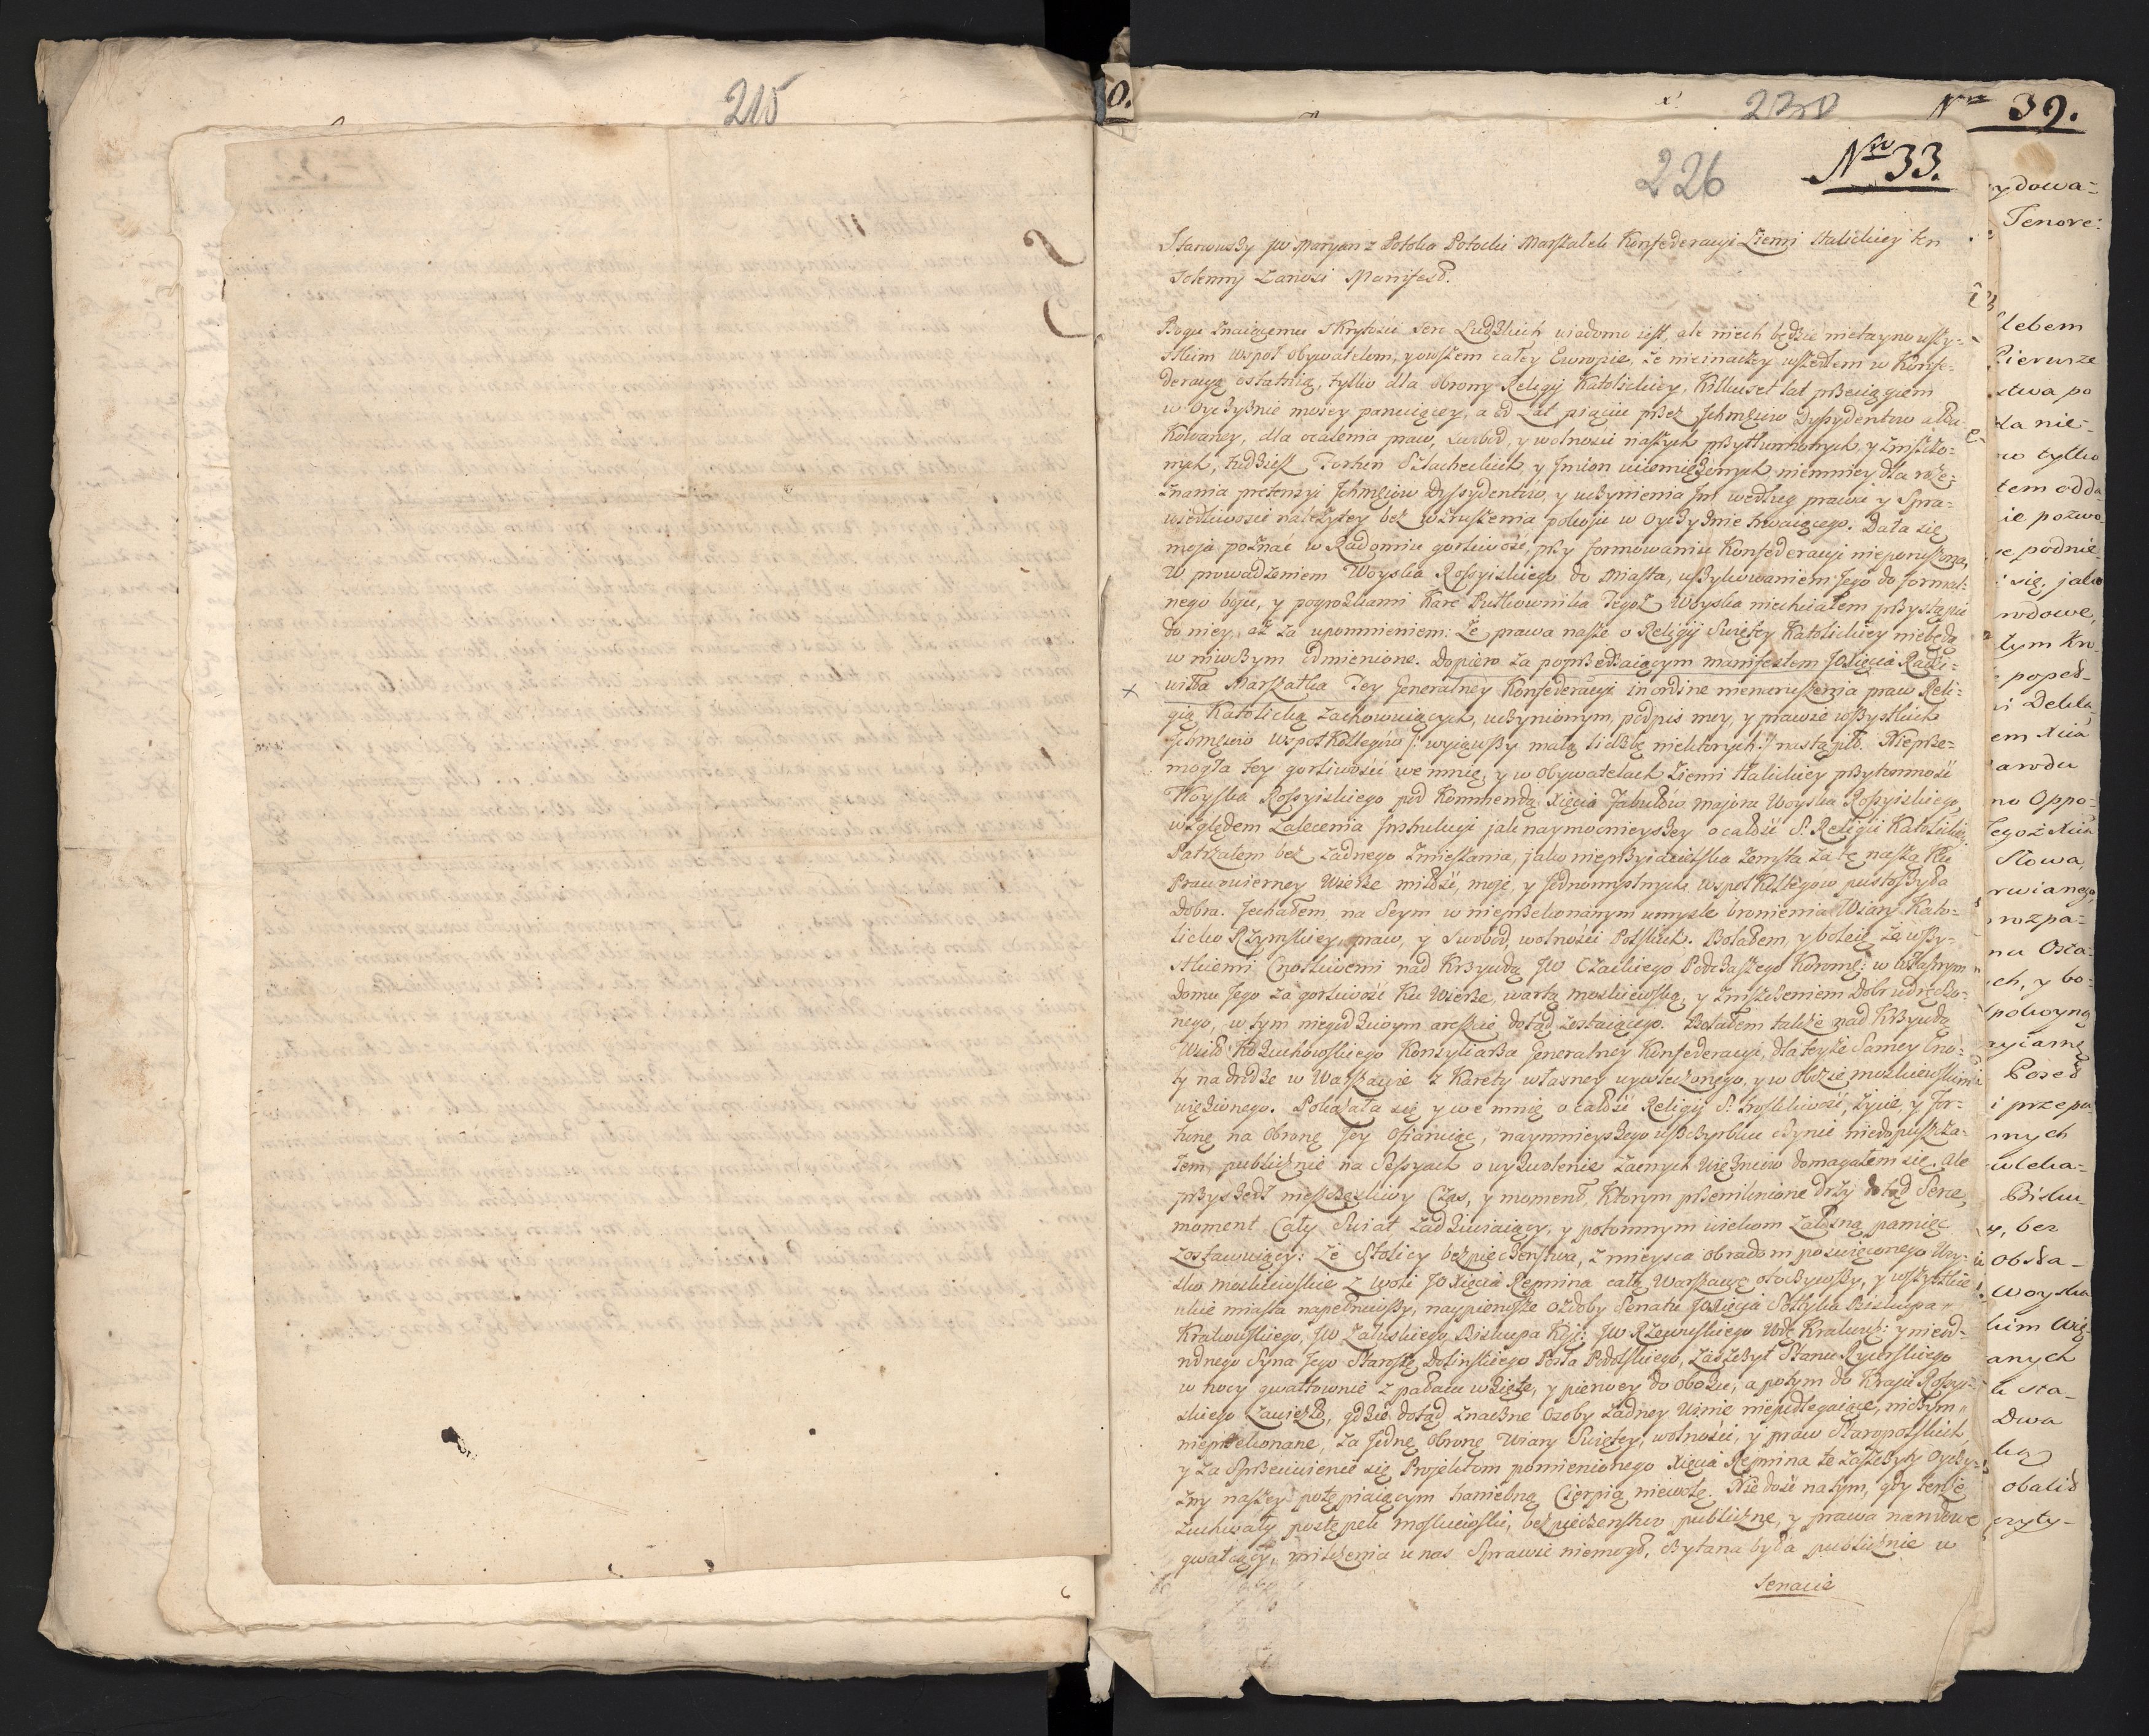 215
0.
230
Nro 39.
226
Nro 33.
Stanowszy JW Maryan z Potoka Potocki Marszałek Konfederacyi Ziemi Halickiey ten
Solenny zanosi Manifest.
Bogu znaiącemu skrytości serc Ludzkich wiadomo iest, ale niech będzie nietayno wszy-
stkim wspoł obywatelom, y owszem całey Europie, że nieinaczey wszedłem w Konfe-
deracyą ostatnią, tylko dla obrony Religij Katolickiey, Kilkuset lat przeciągiem
w Oyczyznie moiey panuiącey, a od lat pięciu przez Jchmciow Dyssydentow atta-
kowaney, dla ocalenia praw, swobod, y wolności naszych przytłumionych y zniszczo-
nych, tudziesz Fortun Szlacheckich, y Jmion uciemiężonych niemniey dla roze-
znania pretensyi Jchmciow Dyssydentow, y uczynienia Jm według prawa y Spra-
wiedliwości należytey bez wzruszenia pokoju w Oyczyznie trwaiącego. Dała się
moja poznać w Radomiu gorliwość, przy formowaniu Konfederacyi nieporuszona,
W prowadzeniem Woyska Rossyiskiego do Miasta, uszykowaniem Jego do formal-
nego boju, y pogrozkami Kare Pułkownika Tegoż Woyska niechciałem przystąpić
do niey, aż za upomnieniem: Że prawa nasze o Religij Swiętey Katolickiey niebędą
w niwczym odmienione. Dopiero za poprzedzaiącym manifestem JOXięcia Radzi-
wiłła Marszałka Tey Generalney Konfederacyi in ordine nienaruszenia praw Reli-
gią Katolicką zachowuiących, uczynionym, podpis moy, y prawie wszystkich
Jchmciow wspoł Kollegow /: wyiąwszy małą liczbę niektorych :/ nastąpił. Nieprze-
mogła tey gorliwości we mnie, y w obywatelach Ziemi Halickiey przytomność
Woyska Rossyiskiego pod Kommendą Xięcia Majora Woyska Rossyiskiego,
względem zalecenia Jnstrukcyi jak naymocnieyszey o całość S. Religii Katolickiey.
Patrzałem bez żadnego zmieszania, jako nieprzyiacielska zemsta za tę naszą Ku
Prawowierney Wierze miłość, moje, y Jednomyslnych wspoł Kollegow pustoszyła
Dobra. Jechałem na Seym w nieprzekonanym umysle bronienia Wiary Kato-
licko Rzymskiey, praw, y Swobod, wolności Polskich. Bolałem, y boleię, ze wszy-
stkiemi Cnotliwemi nad Krzywdą JW Czackiego Podczaszego Koronneg: w własnym
domu Jego za gorliwość Ku Wierze, wartą moskiewską, y zniszczeniem Dobr udręczo-
nego, w tym niegodziwym areszcie dotąd zostaiącego. Bolałem także nad Krzywdą
Kożuchowskiego Konsyliarza Generalney Konfederacyi, dla teyże Samey Cno-
ty na drodze w Warszawie z Karety własney wywleczonego, y w Obozie moskiewskim
więzionego. Pokazała się y we mnie o całość Religij S. troskliwość, życie, y For-
tunę na obronę Jey ofiaruiąc, naymnieyszego uszczyrbku czynić niedopuszcza-
łem, publicznie na Sessyach o wyzwolenie zacnych Więzniow domagałem się, ale
przyszedł nieszczęsliwy Czas, y moment, Ktorym przeniknione drży dotąd Serce,
moment Cały Swiat zadziwiaiący, y potomnym wiekom żałosną pamięć
zostawuiący: że Stolicy bezpieczenstwa, z mieysca obradom poswięconego Woy-
sko moskiewskie z woli JO Xięcia Repnina całą Warszawę otoczywszy, y wszystkie
ulice miasta napełniwszy, naypierwsze ozdoby Senatu JOXięcia Sołtyka Biskupa
Krakowskiego, JW Załuskiego Biskupa Kijo: JW Rzewuskiego Wdę Krakowg: y nieod-
rodnego Syna Jego Starostę Dolinskiego Posła Podolskiego, zaszczyt Stanu Rycerskiego
w nocy gwałtownie z pałacu wzięte, y pierwey do obozu, a potym do Kraju Rossyi-
skiego zawiezło, gdzie dotąd znaczne Osoby żadney Winie niepodlegaiące, niczym
nieprzekonane, za Jednę obronę Wiary Swiętey, wolności, y praw Staropolskich,
y za Sprzeciwienie się Projektom pomienionego Xięcia Repnina te zaszczyty Oyczy-
zny naszey potępiaiącym haniebną Cierpią niewolę. Nie dość na tym, gdy ten że
zuchwały postępek moskiewski, bezpieczenstwo publiczne, y prawa narodowe
gwałcący, milczenia u nas Sprawić niemogł, czytana była publicznie w
Senacie
ydowa-
Tenore:
lebem
Pierwsze
stwa po
la nie-
tylko
tem odda
ie pozwo
e podnie
się, jako
rodowe,
tym Kro
popeł-
Dekla
em Xcia
arodu
no Oppo-
Tegoż Xcia
Słowa,
rwianego,
rozpa-
nu Ocza-
ch, y bo-
pokoyną
Poseł
i przepu
nnych
wleka-
Bisku-
y, bez
Obsta-
Woyska
kim Wię-
anych
k sta-
Dwa
obalić
eryty-